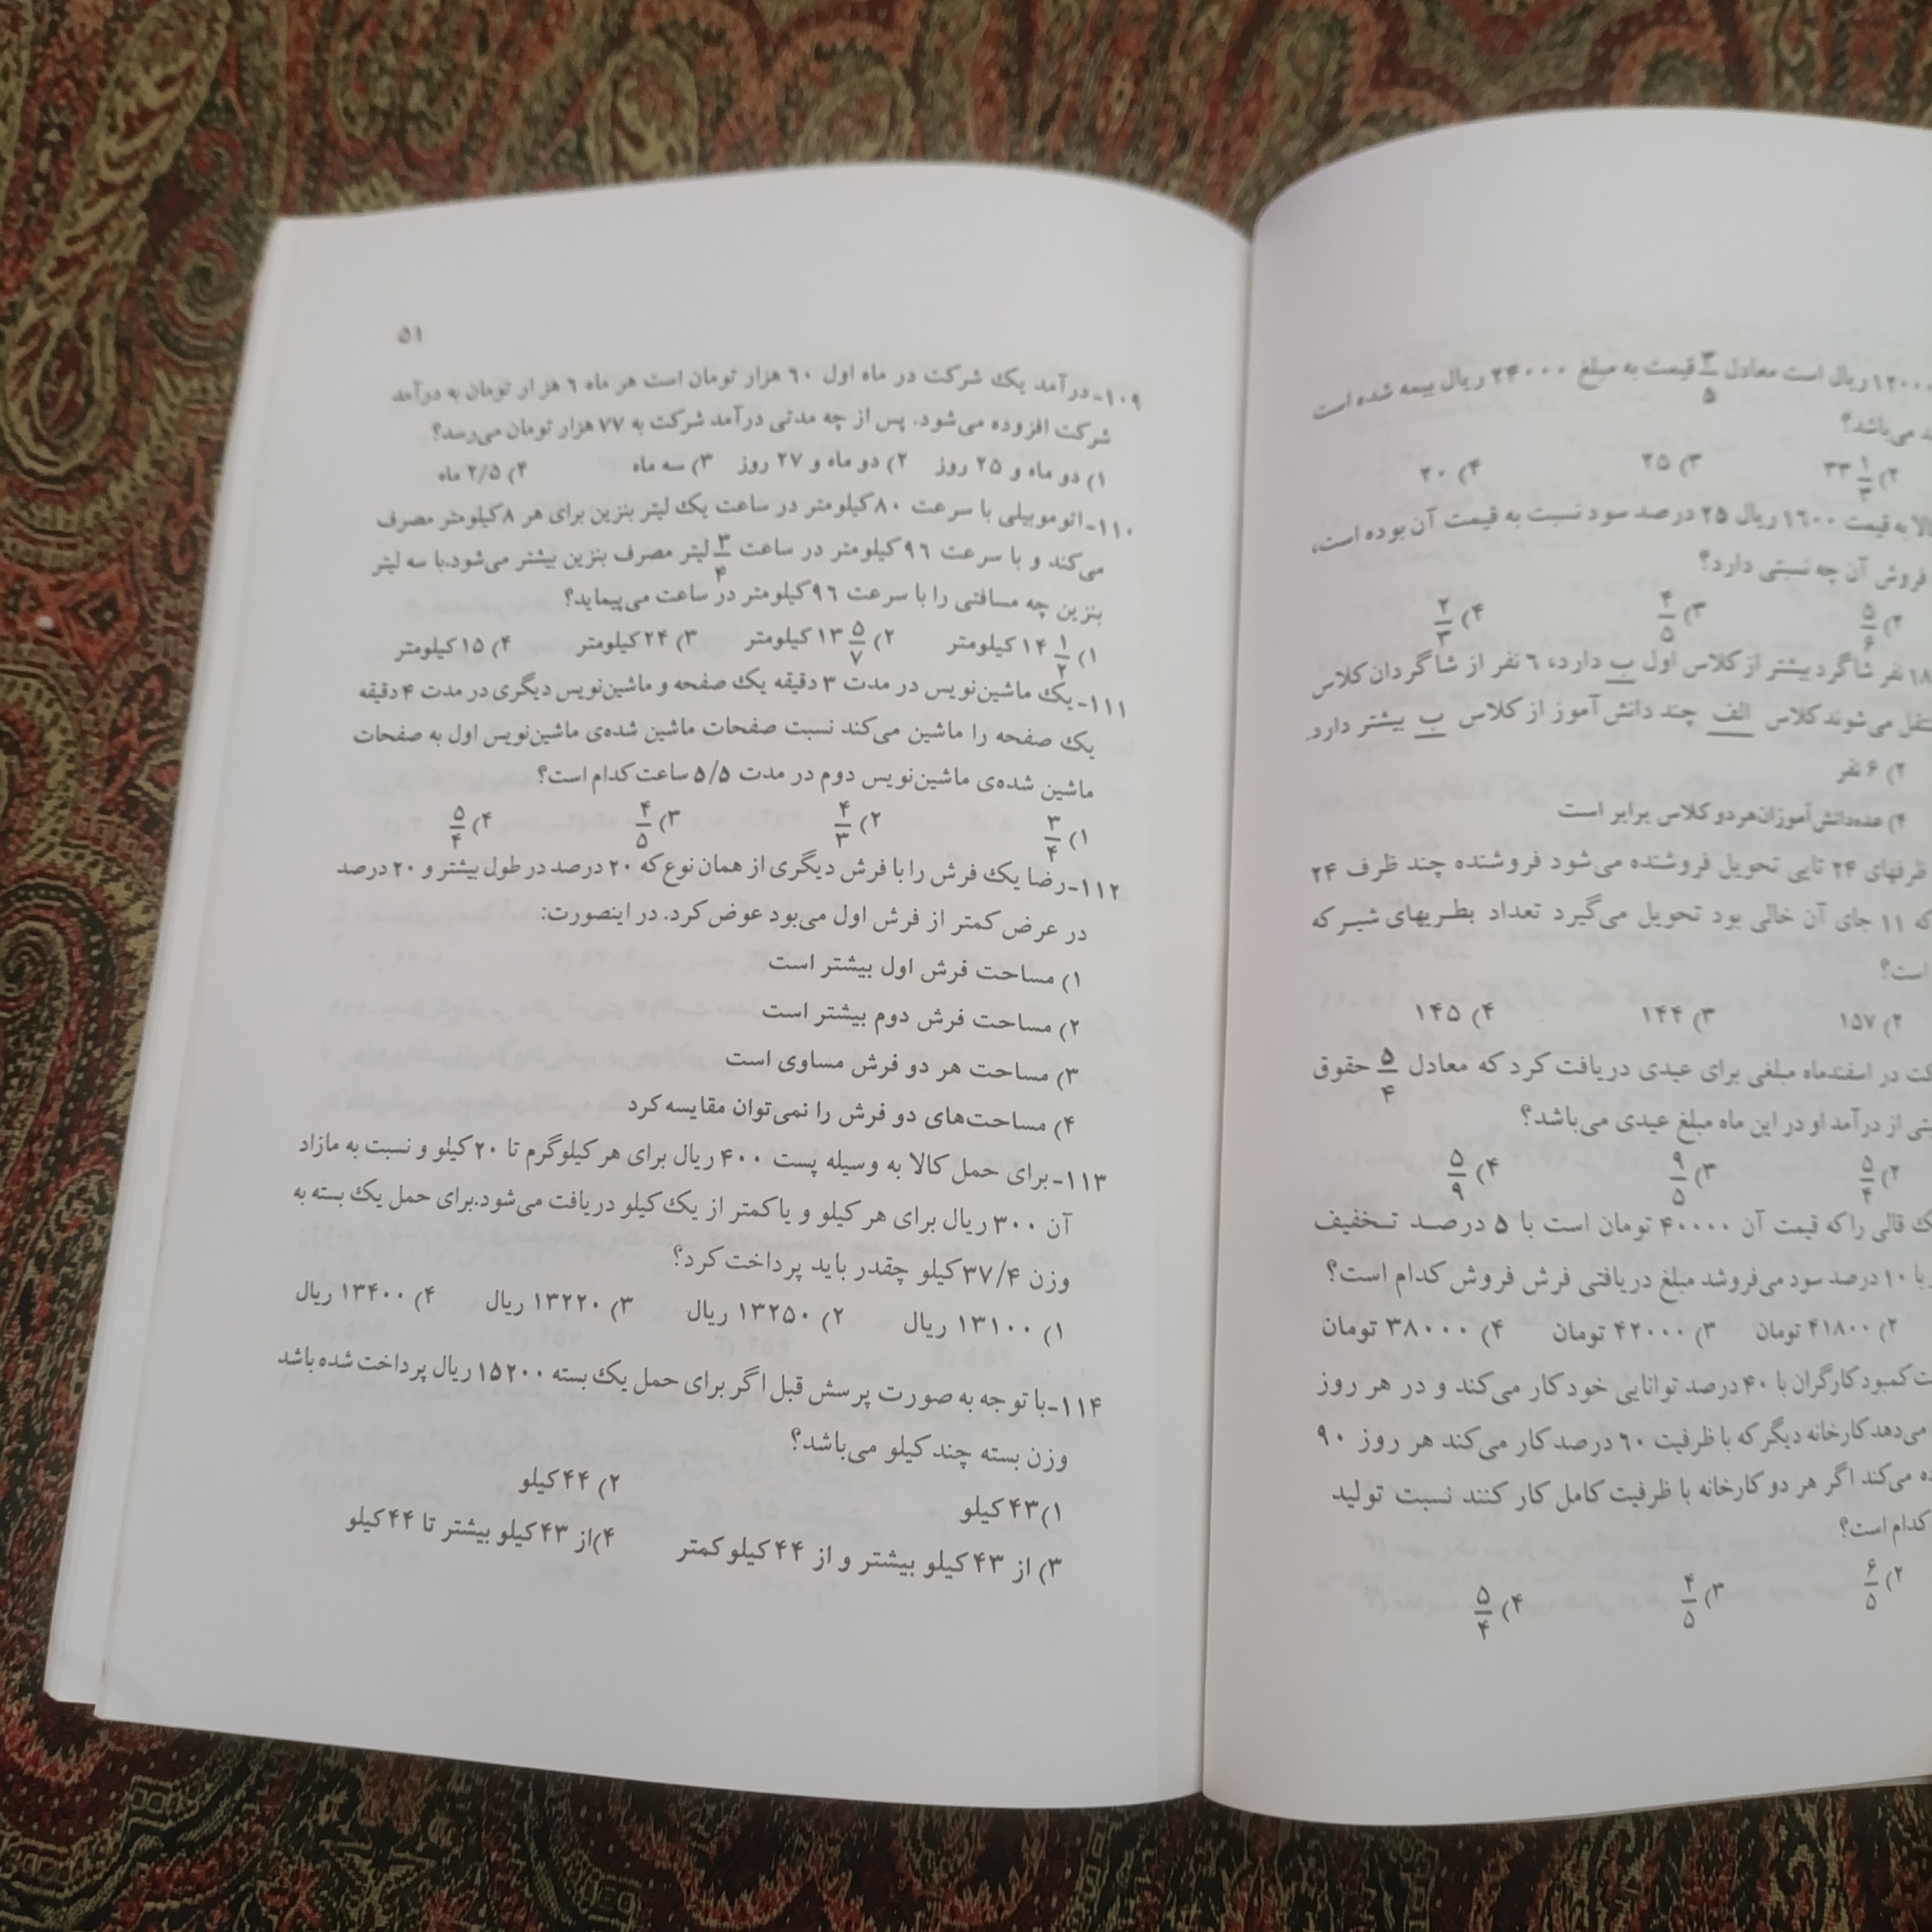 ۵۱
۱۰۹-درآمد یک شرکت در ماه اول ۶۰ هزار تومان است هر ماه ۶ هزار تومان به درآمد
شرکت افزوده می‌شود. پس از چه مدتی درآمد شرکت به ۷۷ هزار تومان می‌رسد؟
۱) دو ماه و ۲۵ روز ۲) دو ماه و ۲۷ روز ۳) سه ماه ۴) ۲/۵ ماه
۱۱۰-اتوموبیلی با سرعت ۸۰ کیلومتر در ساعت یک لیتر بنزین برای هر ۸ کیلومتر مصرف
می‌کند و با سرعت ۹۶ کیلومتر در ساعت ۳/۴ لیتر مصرف بنزین بیشتر می‌شود.با سه لیتر
بنزین چه مسافتی را با سرعت ۹۶ کیلومتر در ساعت می‌پیماید؟
۱) ۱۴ ۱/۲ کیلومتر ۲) ۱۳ ۵/۷ کیلومتر ۳) ۲۴ کیلومتر ۴) ۱۵ کیلومتر
۱۱۱-یک ماشین‌نویس در مدت ۳ دقیقه یک صفحه و ماشین‌نویس دیگری در مدت ۴ دقیقه
یک صفحه را ماشین می‌کند نسبت صفحات ماشین شده‌ی ماشین‌نویس اول به صفحات
ماشین شده‌ی ماشین‌نویس دوم در مدت ۵/۵ ساعت کدام است؟
۱) ۳/۴ ۲) ۴/۳ ۳) ۴/۵ ۴) ۵/۴
۱۱۲-رضا یک فرش را با فرش دیگری از همان نوع که ۲۰ درصد در طول بیشتر و ۲۰ درصد
در عرض کمتر از فرش اول می‌بود عوض کرد. در اینصورت:
۱) مساحت فرش اول بیشتر است
۲) مساحت فرش دوم بیشتر است
۳) مساحت هر دو فرش مساوی است
۴) مساحت‌های دو فرش را نمی‌توان مقایسه کرد
۱۱۳-برای حمل کالا به وسیله پست ۴۰۰ ریال برای هر کیلوگرم تا ۲۰ کیلو و نسبت به مازاد
آن ۳۰۰ ریال برای هر کیلو و یا کمتر از یک کیلو دریافت می‌شود.برای حمل یک بسته به
وزن ۳۷/۴ کیلو چقدر باید پرداخت کرد؟
۱) ۱۳۱۰۰ ریال ۲) ۱۳۲۵۰ ریال ۳) ۱۳۲۲۰ ریال ۴) ۱۳۴۰۰ ریال
۱۱۴-با توجه به صورت پرسش قبل اگر برای حمل یک بسته ۱۵۲۰۰ ریال پرداخت شده باشد
وزن بسته چند کیلو می‌باشد؟
۱)۴۳ کیلو ۲) ۴۴ کیلو
۳) از ۴۳ کیلو بیشتر و از ۴۴ کیلو کمتر ۴)از ۴۳ کیلو بیشتر تا ۴۴ کیلو
ریال است معادل ۳/۵ قیمت به مبلغ ۲۴۰۰۰ ریال بیمه شده است
می‌باشد؟
۲) ۳۳ ۱/۳ ۳) ۲۵ ۴) ۲۰
به قیمت ۱۶۰۰ ریال ۲۵ درصد سود نسبت به قیمت آن بوده است،
فروش آن چه نسبتی دارد؟
۲) ۵/۶ ۳) ۴/۵ ۴) ۲/۳
۱۸ نفر شاگرد بیشتر از کلاس اول ب دارد، ۶ نفر از شاگردان کلاس
می‌شوند کلاس الف چند دانش‌آموز از کلاس ب بیشتر دارد.
۲) ۶ نفر
۴) عده‌دانش‌آموزان‌هر دو کلاس برابر است
ظرفهای ۲۴ تایی تحویل فروشنده می‌شود فروشنده چند ظرف ۲۴
که ۱۱ جای آن خالی بود تحویل می‌گیرد تعداد بطریهای شیر که
است؟
۲) ۱۵۷ ۳) ۱۴۴ ۴) ۱۴۵
در اسفندماه مبلغی برای عیدی دریافت کرد که معادل ۵/۴ حقوق
از درآمد او در این ماه مبلغ عیدی می‌باشد؟
۲) ۵/۴ ۳) ۹/۵ ۴) ۵/۹
قالی را که قیمت آن ۴۰۰۰۰ تومان است با ۵ درصد تخفیف
با ۱۰ درصد سود می‌فروشد مبلغ دریافتی فرش فروش کدام است؟
۲) ۴۱۸۰۰ تومان ۳) ۴۲۰۰۰ تومان ۴) ۳۸۰۰۰ تومان
کمبود کارگران با ۴۰ درصد توانایی خود کار می‌کند و در هر روز
می‌دهد کارخانه دیگر که با ظرفیت ۶۰ درصد کار می‌کند هر روز ۹۰
می‌کند اگر هر دو کارخانه با ظرفیت کامل کار کنند نسبت تولید
کدام است؟
۲) ۶/۵ ۳) ۴/۵ ۴) ۵/۴